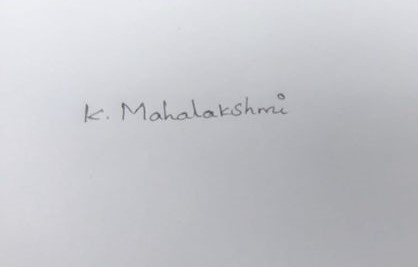 K. Mahalakshmi